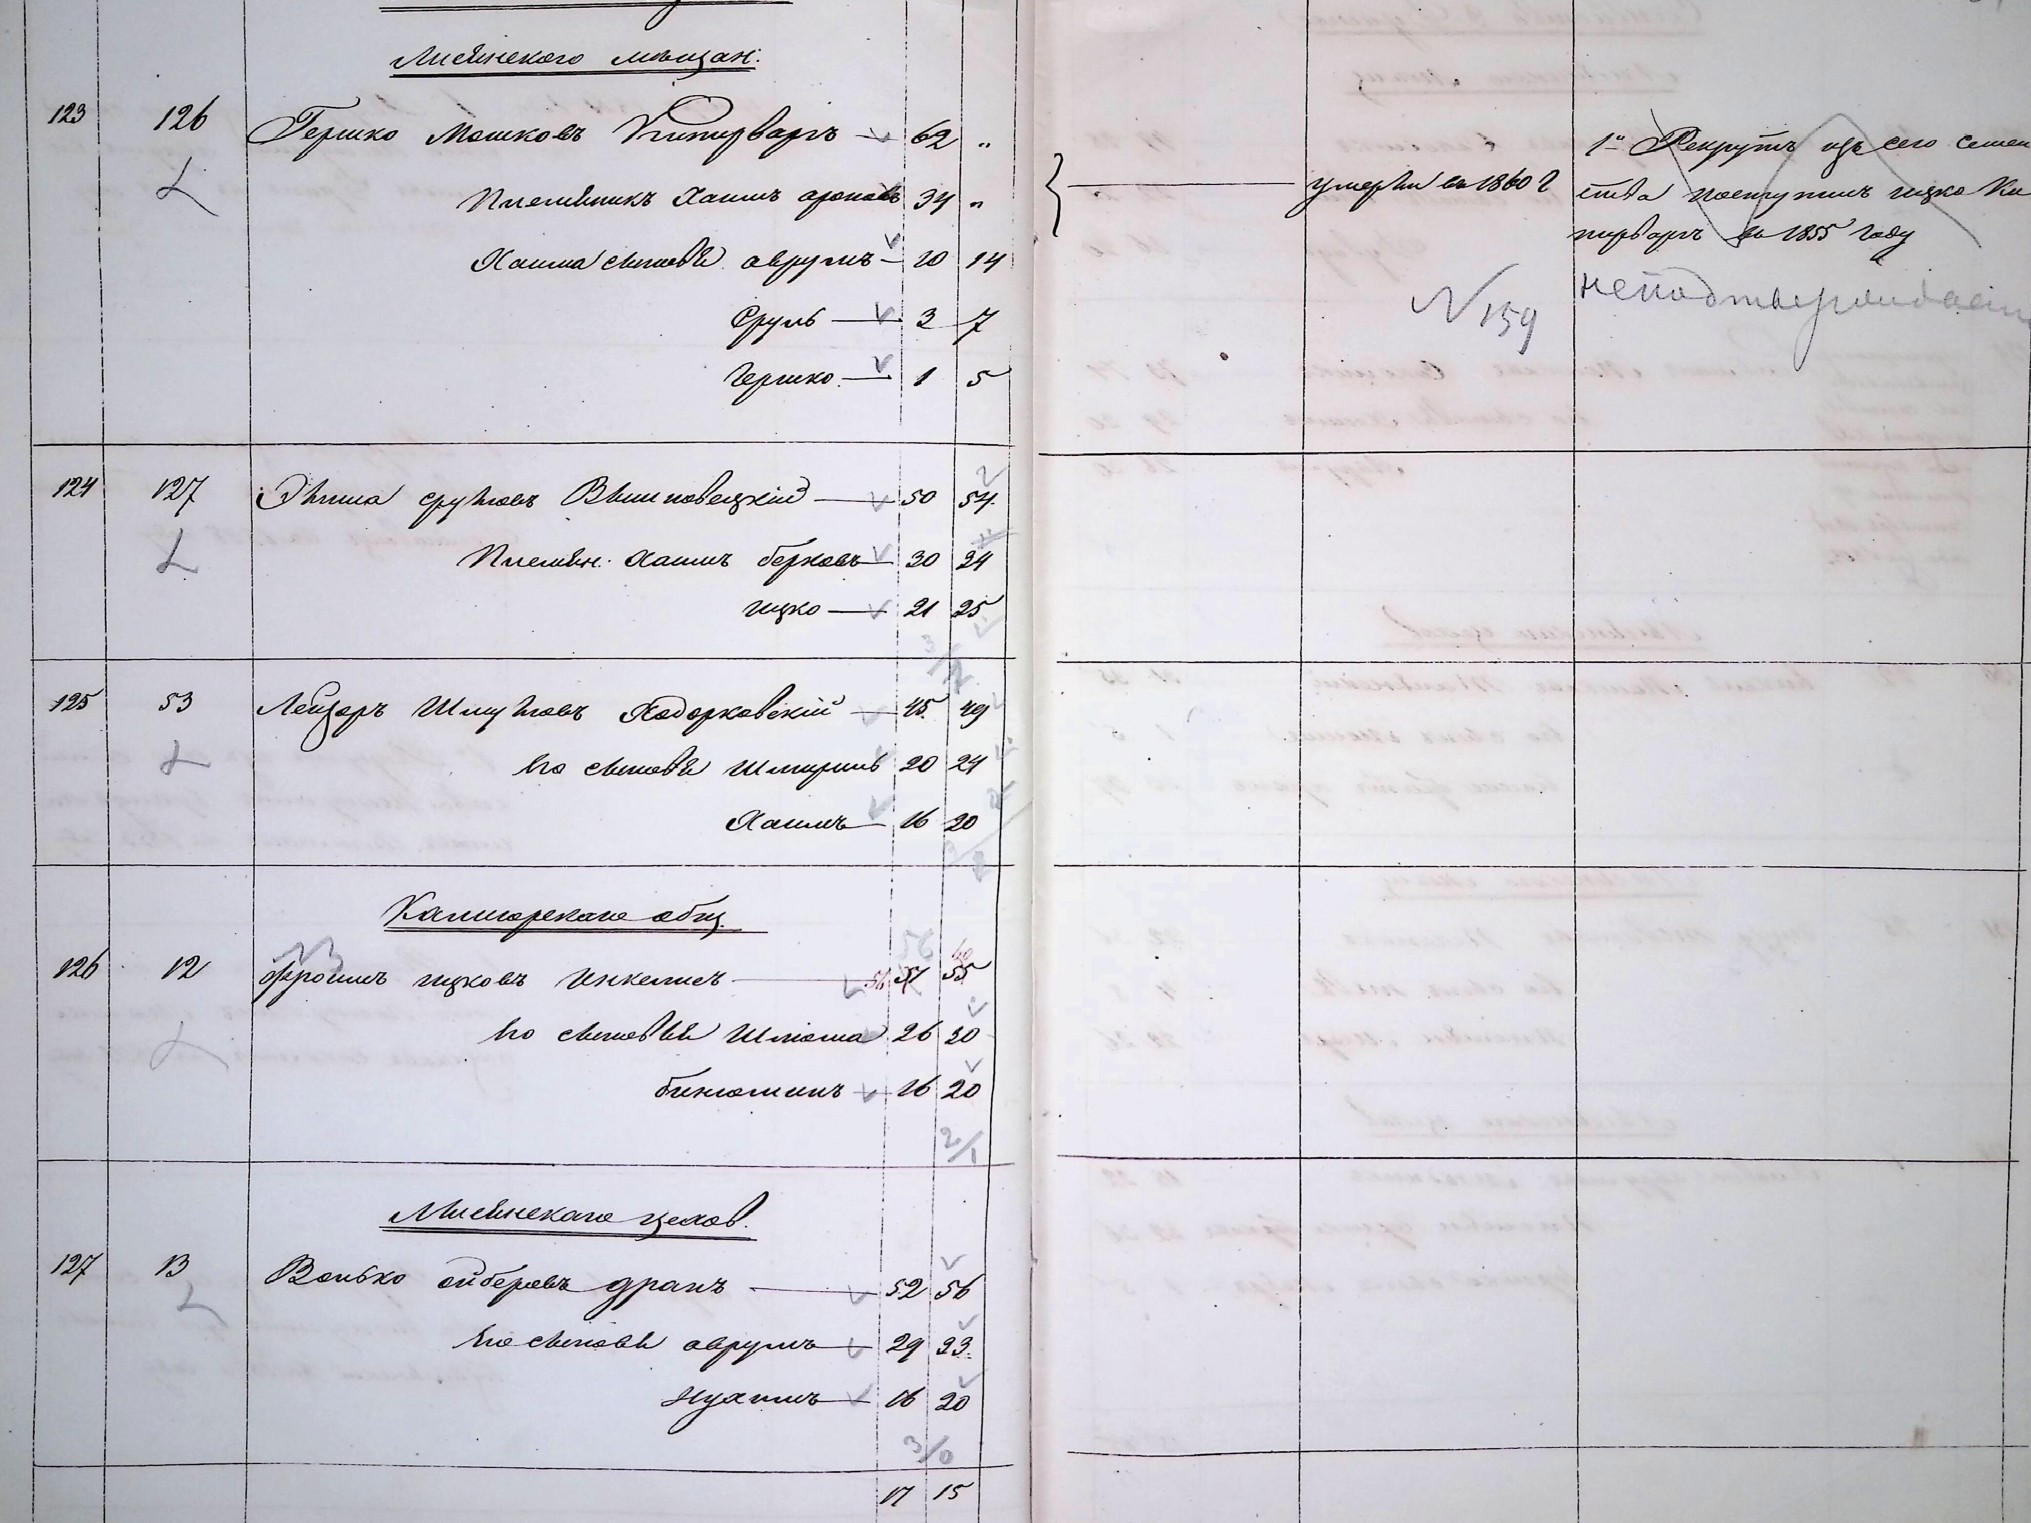 Лисянского мещан.
123 126 Гершко Мошковъ Китервargъ — 62 „
Племянникъ Хаимъ ароновъ 34 „
Хаима сыновья аврумъ — 10 14
Сруль — 3 7
Гершко — 1 5
умерли въ 1860 г
1й Рекрутъ изъ сего семей
ства поступилъ ицко Ки
тервargъ въ 1855 году
N 159
неподтверждает
124 127 сруловъ Вишновецкій — 50 54
Племян. Хаимъ берковъ — 30 34
ицко — 21 25
125 53 Лейзоръ Шмуловъ Ходорковскій — 45 49
его сыновья Шмариль 20 24
Хаимъ — 16 20
Калигорскаго общ.
126 12 Фроимъ ицковъ — 56 51 55 60
его сыновья Шлома 26 30
бинюминъ — 16 20
2/1
Лисянскаго цехов.
127 13 Волько ойберовъ дранъ — 52 56
его сыновья аврумъ — 29 33
Нухимъ — 16 20
3/0
17 15